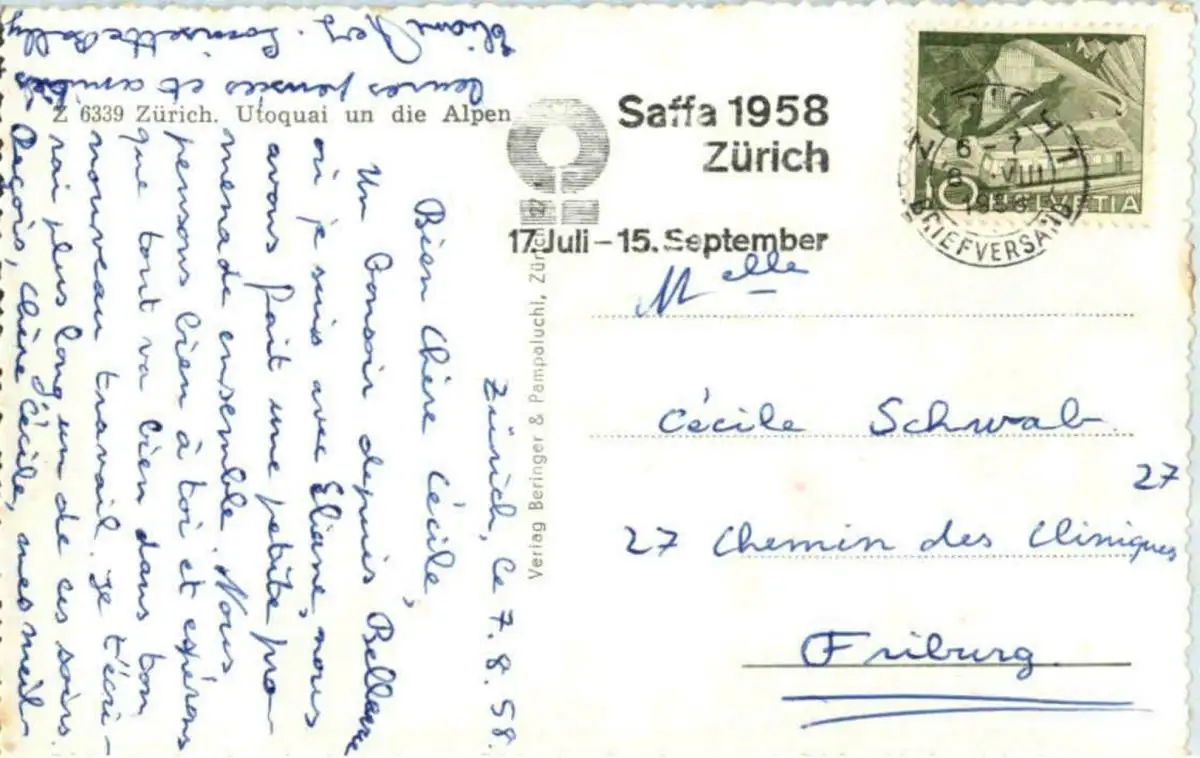 Z 6339 Zürich. Utoquai un die Alpen
Saffa 1958
Zürich
17. Juli – 15. September
BRIEFVERSAND
10 HELVETIA
Verlag Beringer & Pampaluchi, Zürich
Melle
Cécile Schwab
27
27 Chemin des Cliniques
Friburg
Zürich, le 7.8.58.
Bien chère Cécile,
Un bonsoir depuis Bellevue
où je suis avec Eliane, nous
avons fait une petite pro-
menade ensemble. Nous
pensons bien à toi et espérons
que tout va bien dans ton
nouveau travail. Je t'écri-
rai plus long un de ces soirs.
Reçois, chère Cécile, mes meil-
leures pensées et amitiés